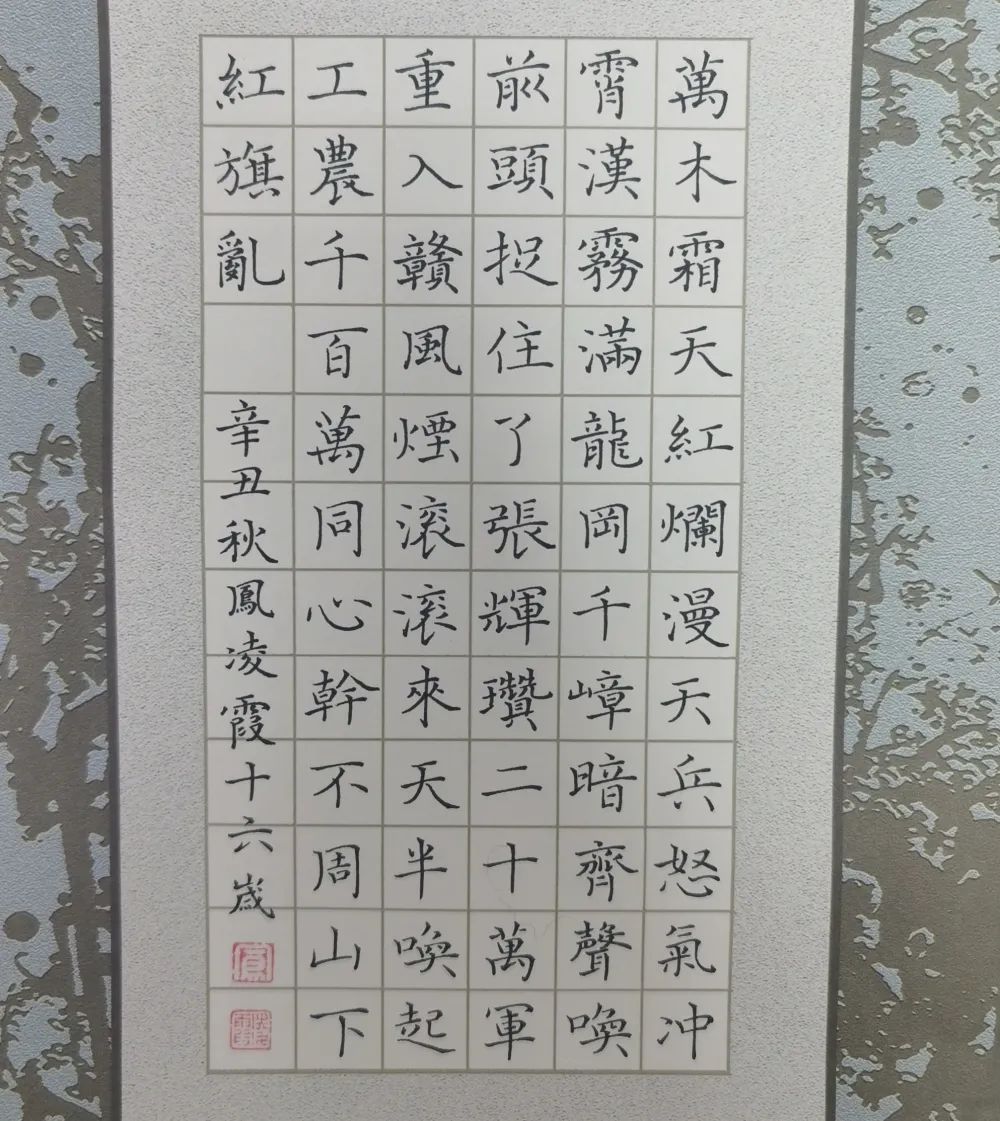 萬木霜天紅爛漫天兵怒氣冲
霄漢霧滿龍岡千嶂暗齊聲喚
前頭捉住了張輝瓚二十萬軍
重入贛風煙滚滚來天半喚起
工農千百萬同心幹不周山下
紅旗亂
辛丑秋鳳凌霞十六歲